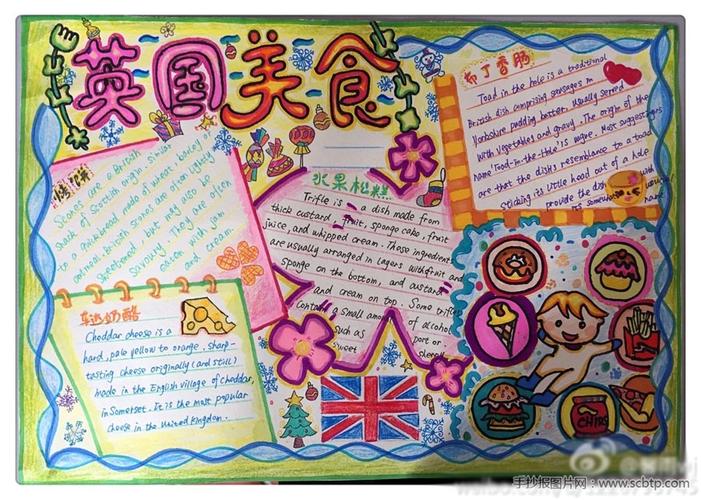 英国美食
布丁香肠
Toad in the hole is a traditional
British dish comprising sausages in
Yorkshire pudding batter, usually served
with vegetables and gravy. The origin of the
name 'Toad-in-the-Hole' is vague. Most suggestions
are that the dish's resemblance to a toad
sticking its little head out of a hole
provide the dish with
its somewhat
name
Scones are a British
snack of Scottish origin, similar
to a
made of wheat, barley or
oatmeal. British scones are often lightly
sweetened, but may also be
savoury. They are often
eaten with jam
and cream.
水果松糕
Trifle is a dish made from
thick custard, fruit, sponge cake, fruit
juice, and whipped cream. These ingredients
are usually arranged in layers with fruit and
sponge on the bottom, and custard
and cream on top. Some trifles
contain a small amount of alcohol
such as port or
sweet
车达奶酪
Cheddar cheese is a
hard, pale yellow to orange, sharp-
tasting cheese originally (and still)
made in the English village of Cheddar,
in Somerset. It is the most popular
cheese in the United Kingdom.
CHIPS
手抄报图片网:www.scbtp.com